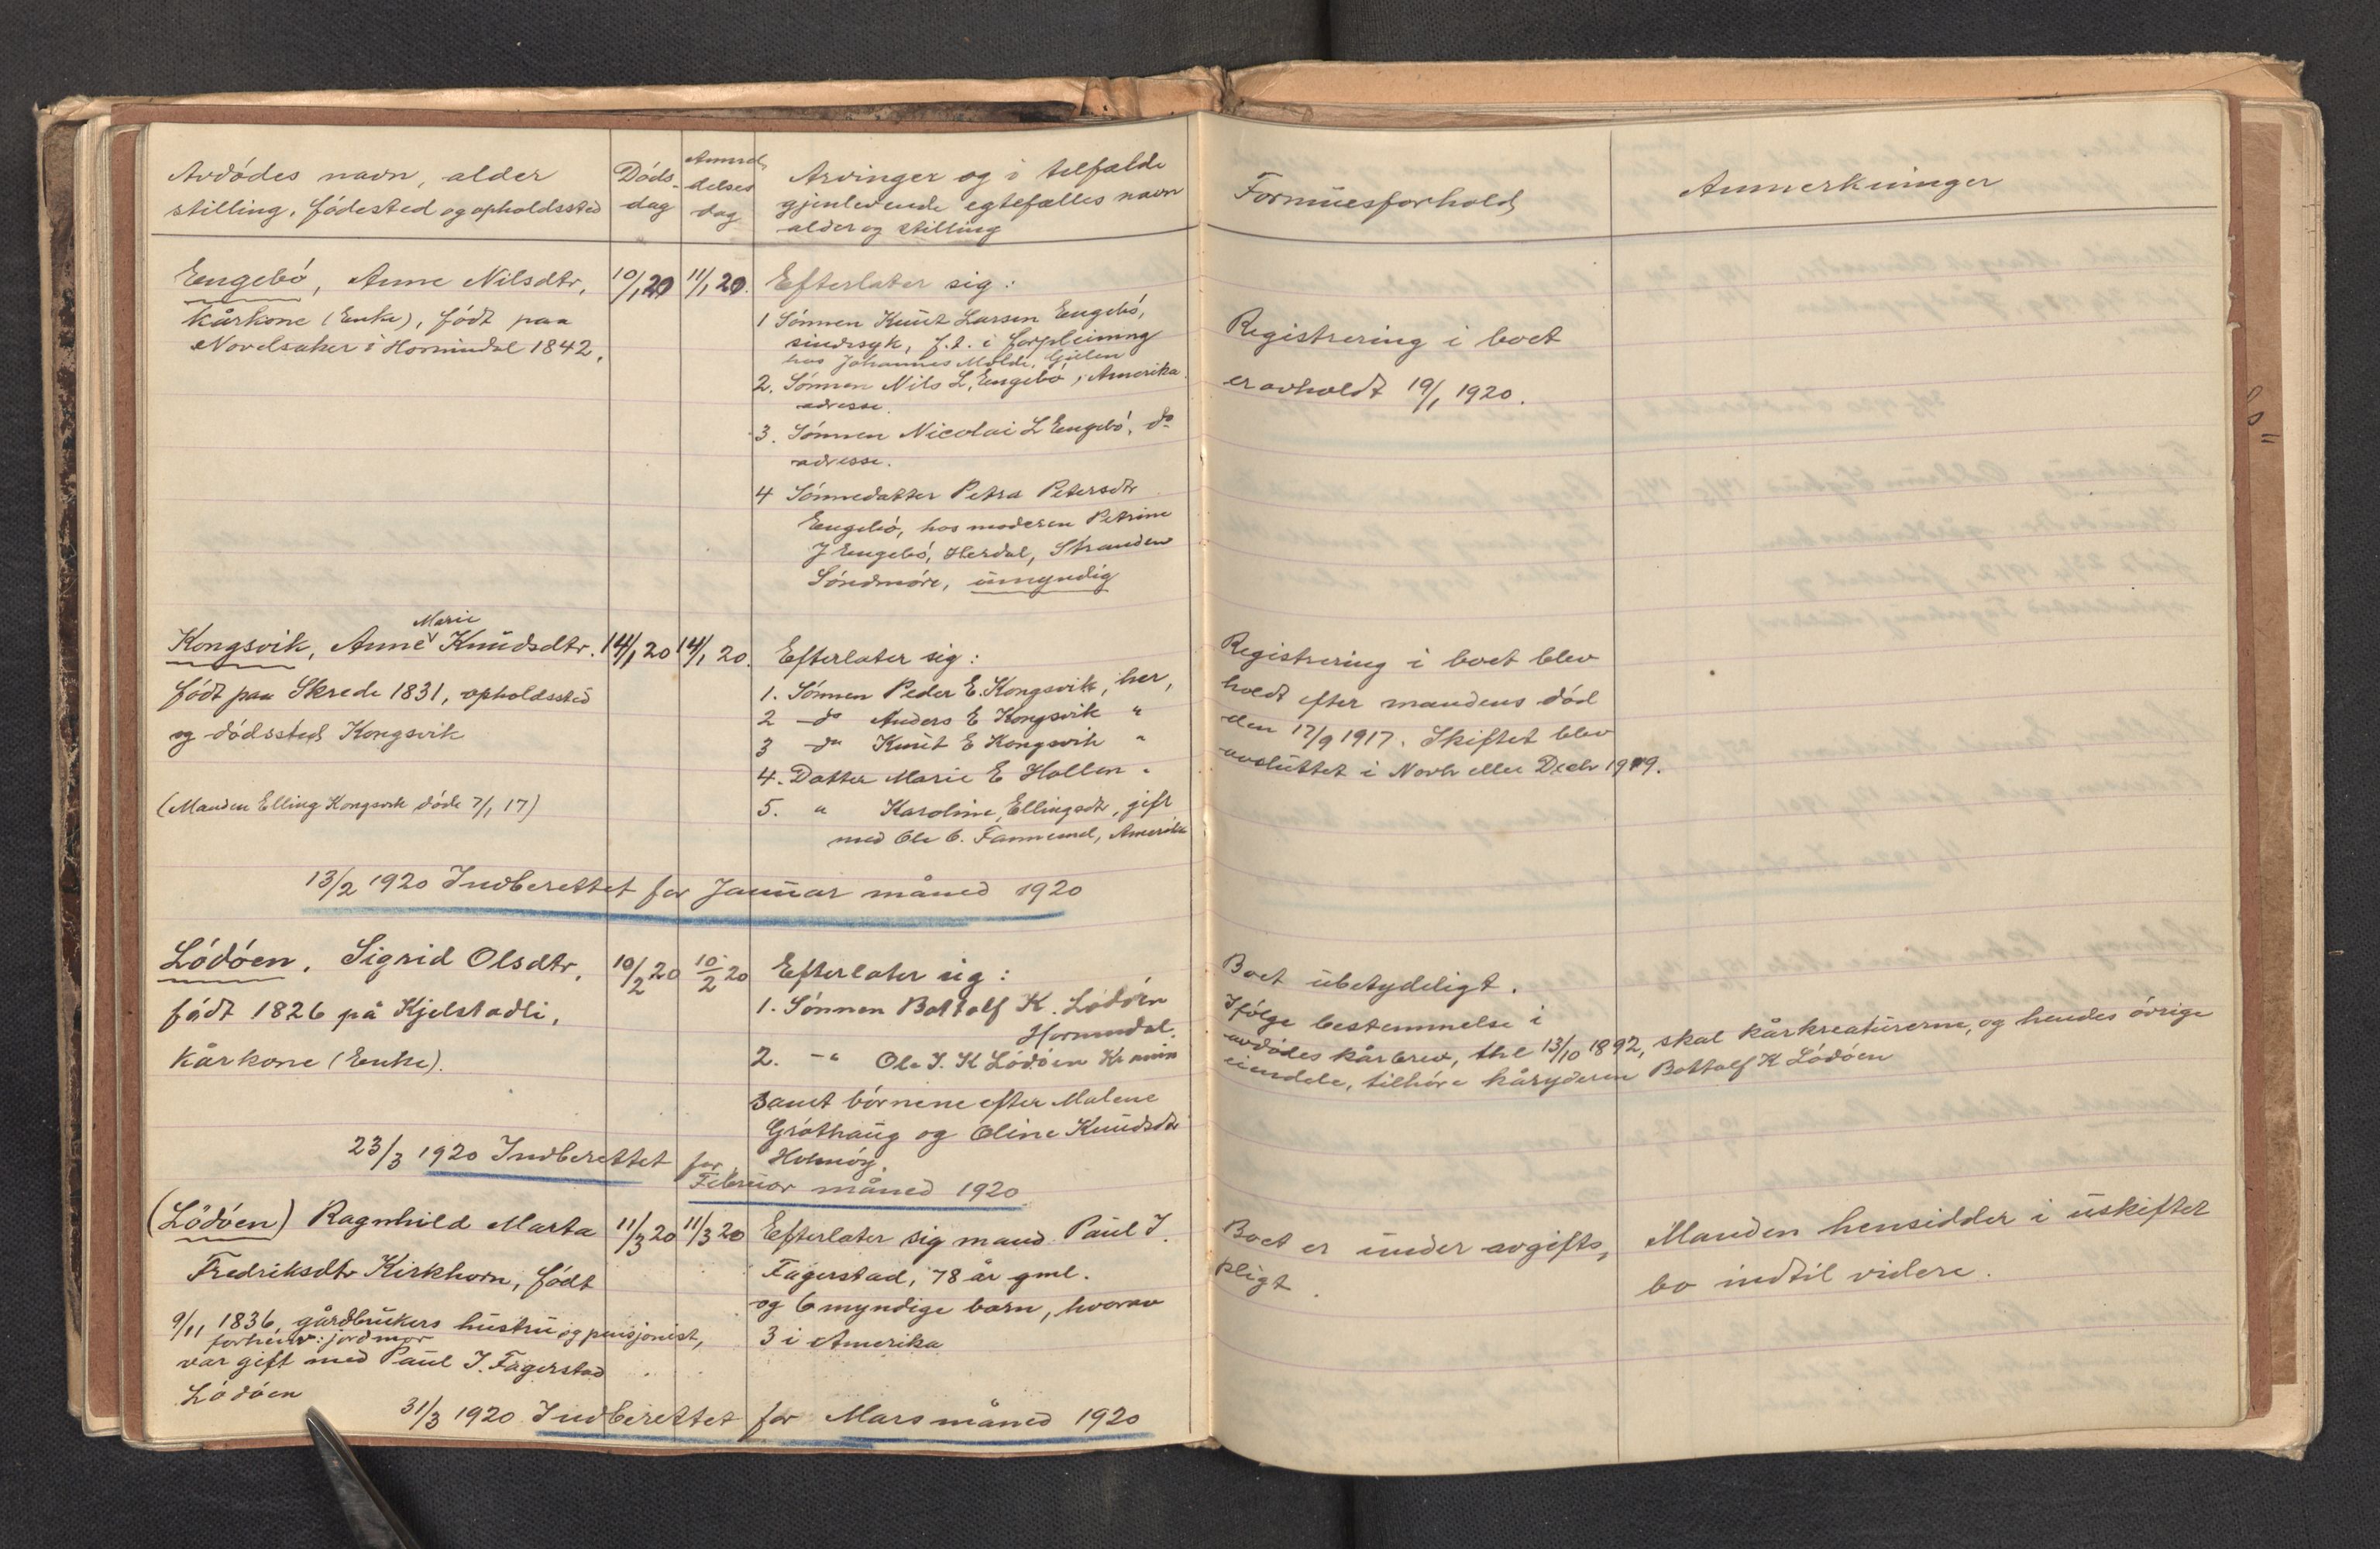 Avdødes navn, alder
stilling, fødested og opholdssted
Døds-
dag
Anmel-
delses
dag
Arvinger og i tilfælde
gjenlevende egtefælles navn
alder og stilling
Formuesforhold
Anmerkninger
Engebó, Anne Nilsdtr,
Kårkone (Enke), født paa
Navelsaker i Hornindal 1842,
10/1 20
11/1 20.
Efterlater sig:
1 Sønnen Knut Larsen Engebó,
sindssyk, f.t. i forpleining
hos Johannes Molde, Gulen
2. Sønnen Nils L. Engebó, Amerika
adresse.
3. Sønnen Nicolai L Engebó, do
adresse.
4 Sønnedatter Petra Petersdtr
Engebó, hos moderen Petrine
J Engebó, Herdal, Stranden
Søndmøre, umyndig
Registrering i boet
er avholdt 19/1 1920.
Marie
Kongsvik, Anne Knudsdtr.
født paa Skrede 1831, opholdssted
og dødssted Kongsvik
(Manden Elling Kongsvik døde 7/1 17)
14/1 20
14/1 20.
Efterlater sig:
1. Sønnen Peder E. Kongsvik, her,
2 do Anders E Kongsvik "
3 do Knut E Kongsvik "
4. Datter Marie E Hallen "
5. " Karoline Ellingsdtr, gift
med Ole C. Tannemel, Amerika
Registrering i boet blev
holdt efter mandens død
den 17/9 1917. Skiftet blev
avsluttet i Novbr eller Decbr 1919.
13/2 1920 Indberettet for Januar måned 1920
Lødøen, Sigrid Olsdtr,
født 1826 på Kjelstadli,
Kårkone (Enke).
10/2 20
10/2 20
Efterlater sig:
1. Sønnen Bottolf K. Lødøen
Hornindal.
2. -" Ole J. K Lødøen
samt børnene efter Malene
Gróthaug og Oline Knudsdtr
Holmøy.
Boet ubetydeligt.
Ifølge bestemmelse i
avdødes kårbrev, thl 13/10 1892, skal kårkreaturerne, og hendes øvrige
eiendele, tilhøre kåryderen Bottolf K Lødøen
23/3 1920 Indberettet for
Februar måned 1920
(Lødøen) Ragnhild Marta
Fredriksdtr Kirkhorn, født
9/11 1836, gårdbrukers hustru og pensjonist,
forhenv: jordmor
var gift med Paul J. Fagerstad
Lødøen
11/3 20
11/3 20
Efterlater sig mand Paul J.
Fagerstad, 78 år gml.
og 6 myndige barn, hvorav
3 i Amerika
Boet er under avgifts-
pligt.
Manden hensidder i uskiftet
bo indtil videre.
31/3 1920 Indberettet for Mars måned 1920